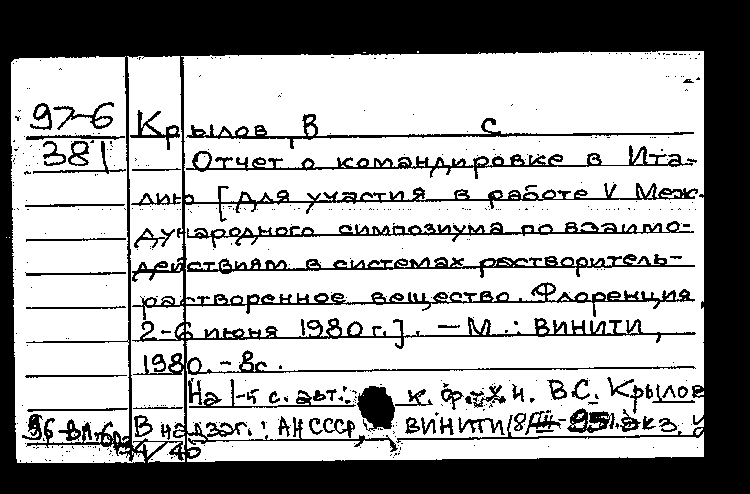 97-6
381
Крылов, В С
Отчет о командировке в Ита-
лию [для участия в работе V Меж-
дународного симпозиума по взаимо-
действиям в системах растворитель-
растворенное вещество. Флоренция,
2-6 июня 1980 г.]. — М.: ВИНИТИ,
1980. - 8с.
На 1-й с. авт.: к. ф.-х. н. В.С. Крылов
В надзаг.: АН СССР, ВИНИТИ экз. у